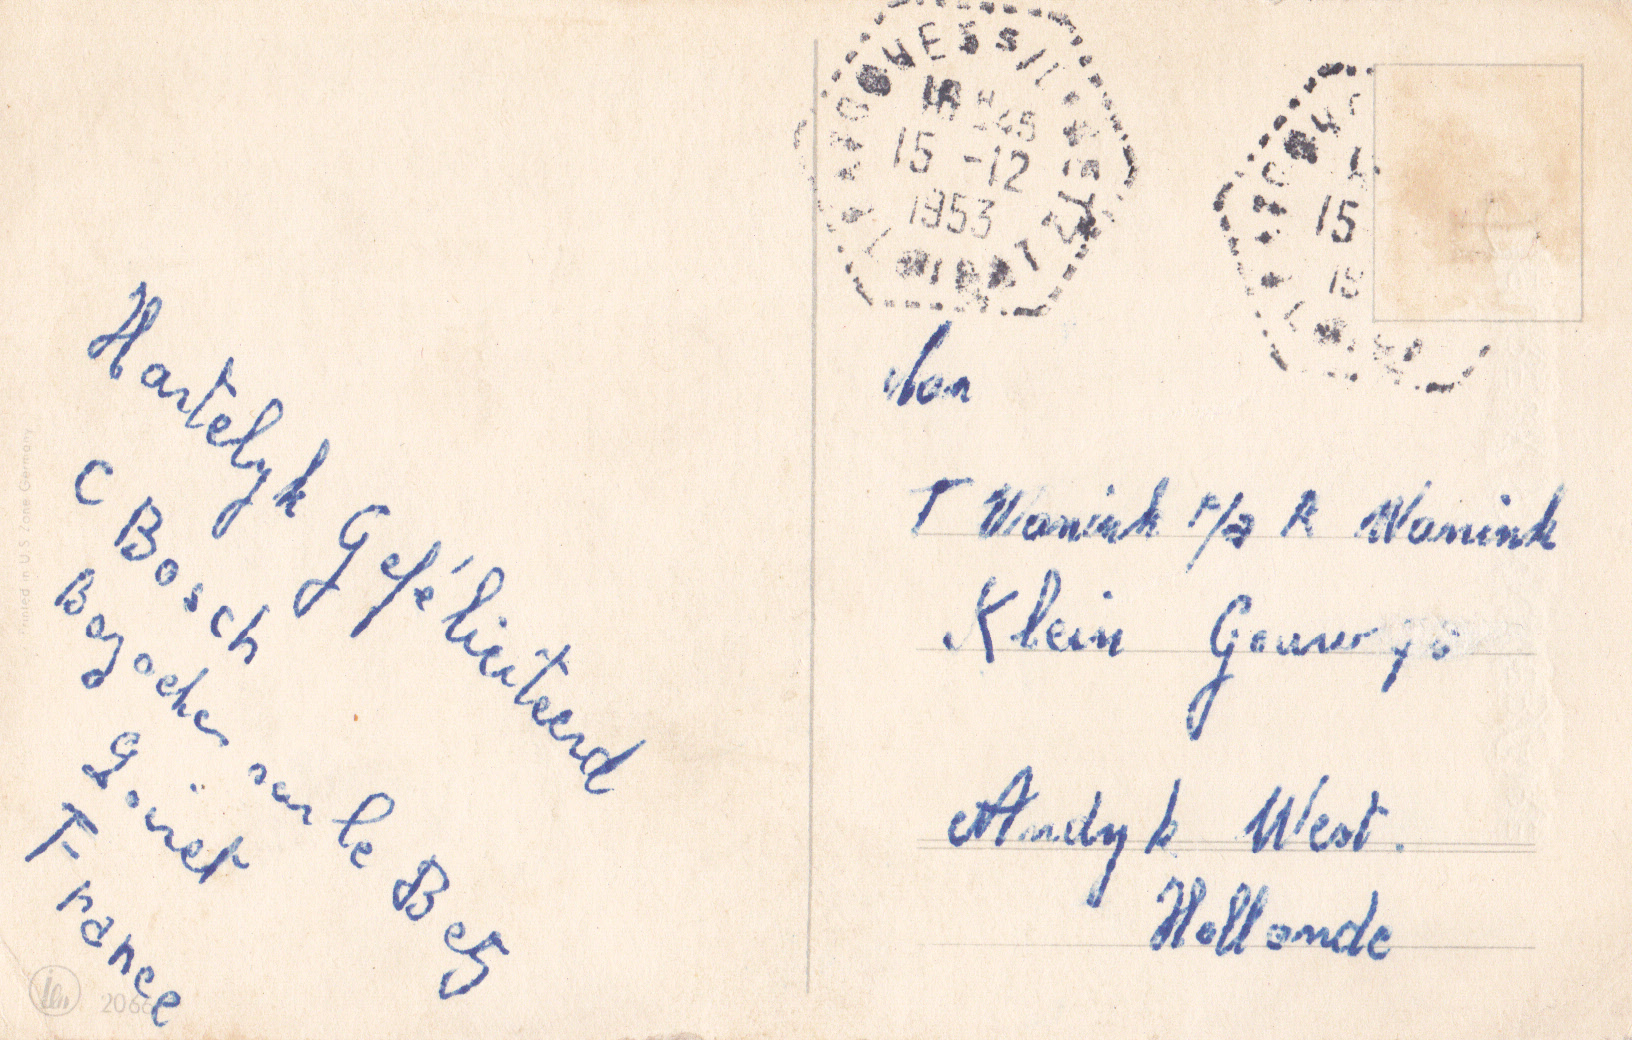 Hartelyk Geféliciteerd
C Bosch
Bazoches sur le Betz
Loiret
France
Printed in U.S. Zone Germany
18 H 45
15 -12
1953
LOIRET
15
Aan
T Wanink P/a R Wanink
Klein Gouw
Andyk West.
Hollande